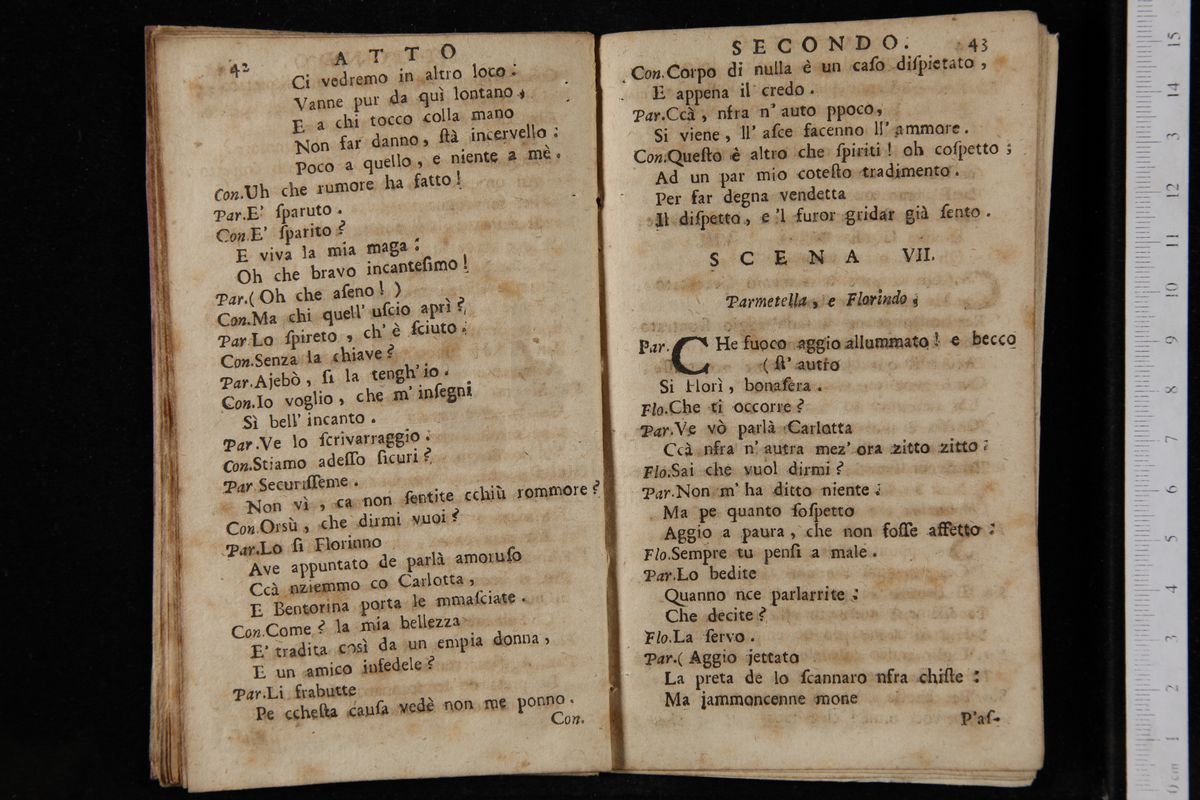 42 ATTO
Ci vedremo in altro loco:
Vanne pur da quì lontano,
E a chi tocco colla mano
Non far danno, ſtà incervello:
Poco a quello, e niente a mè.
Con.Uh che rumore ha fatto!
Par.E' ſparuto.
Con.E' ſparito?
E viva la mia maga:
Oh che bravo incanteſimo!
Par.(Oh che aſeno!)
Con.Ma chi quell' uſcio aprì?
Par.Lo ſpireto, ch' è ſciuto.
Con.Senza la chiave?
Par.Ajebò, ſi la tengh'io.
Con.Io voglio, che m' inſegni
Sì bell' incanto.
Par.Ve lo ſcrivarraggio.
Con.Stiamo adeſſo ſicuri?
Par Securiſſeme.
Non vì, ca non ſentite cchiù rommore?
Con.Orsù, che dirmi vuoi?
Par.Lo ſi Florinno
Ave appuntato de parlà amoruſo
Ccà nziemmo co Carlotta,
E Bentorina porta le mmaſciate.
Con.Come? la mia bellezza
E' tradita così da un empia donna,
E un amico infedele?
Par.Li frabutte
Pe ccheſta cauſa vedè non me ponno.
Con.
SECONDO. 43
Con.Corpo di nulla è un caſo diſpietato,
E appena il credo.
Par.Ccà, nfra n' auto ppoco,
Si viene, ll' aſce facenno ll' ammore.
Con.Queſto è altro che ſpiriti! oh coſpetto;
Ad un par mio coteſto tradimento.
Per far degna vendetta
Il diſpetto, e 'l furor gridar già ſento.
SCENA VII.
Parmetella, e Florindo;
Par.CHe fuoco aggio allummato! e becco
(ſt' autro
Si Florì, bonaſera.
Flo.Che ti occorre?
Par.Ve vò parlà Carlotta
Ccà nfra n' autra mez' ora zitto zitto:
Flo.Sai che vuol dirmi?
Par.Non m' ha ditto niente:
Ma pe quanto ſoſpetto
Aggio a paura, che non foſſe affetto:
Flo.Sempre tu penſi a male.
Par.Lo bedite
Quanno nce parlarrite:
Che decite?
Flo.La ſervo.
Par.(Aggio jettato
La preta de lo ſcannaro nfra chiſte:
Ma jammoncenne mone
P'aſ-